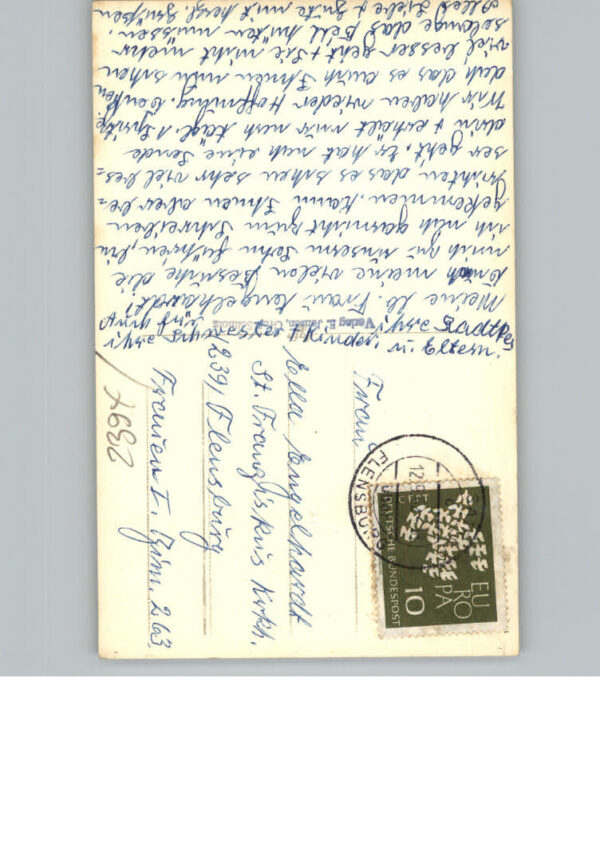 Meine lb. Frau Engelhardt!
Auch meine vielen Besuche, die
mich zu unserm Sohn führen, bin
ich noch garnicht zum Schreiben
gekommen. Kann Ihnen aber be=
richten das es schon sehr viel bes=
ser geht. Er hat noch eine Sonde
drin + erhält nur noch tägl. 1 Spritze
Wir haben wieder Hoffnung. Denken
doch das es auch Ihnen nun schon
viel besser geht + Sie nicht mehr
solange das Bett hüten müssen.
Alles Liebe + Gute mit herzl. Grüßen
Ihre
u. Eltern
Verlag E.
Frau
Ella Engelhardt
St. Franziskus Krkh.
(239) Flensburg
Frauen I. Zim. 263.
2397
FLENSBURG
EUROPA
CEPT
10
DEUTSCHE BUNDESPOST